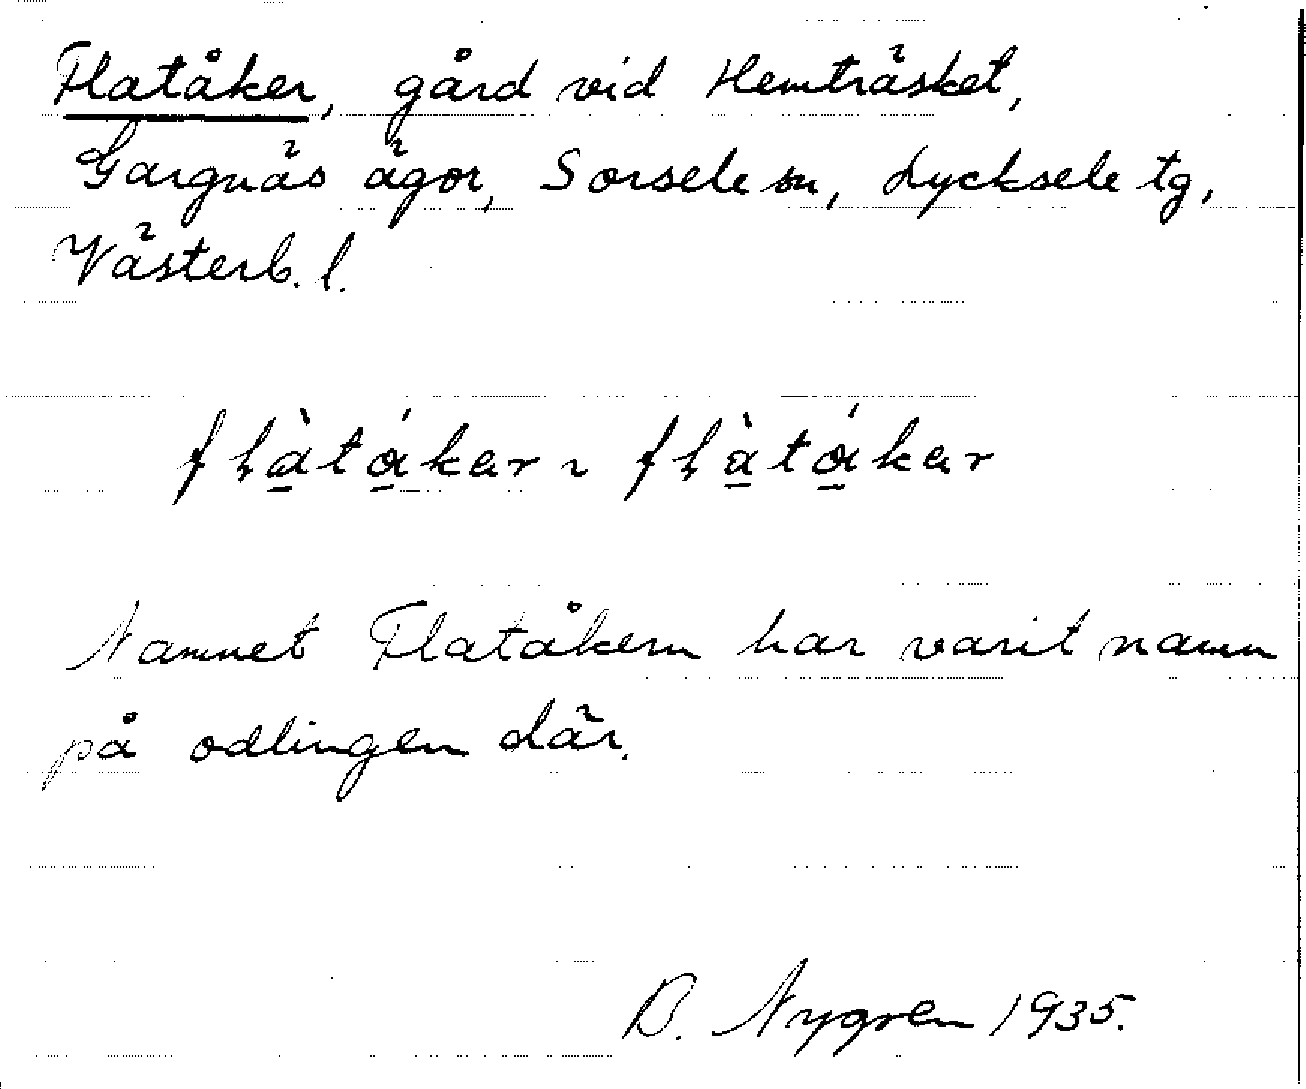 Flatåker, gård vid Hemträsket,
Gargnäs ägor, Sorsele sn, Lycksele tg,
Västerb. l.
Namnet Flatåkern har varit namn
på odlingen där.
B. Nygren 1935.